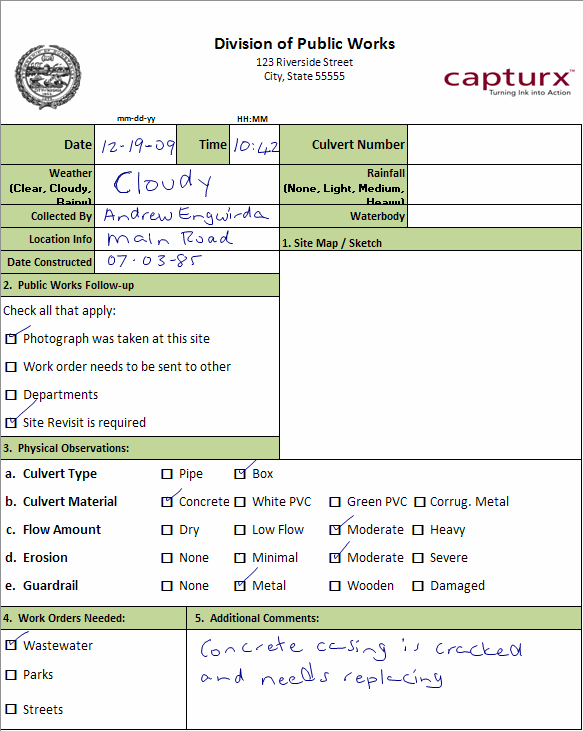 Division of Public Works
123 Riverside Street
City, State 55555
capturx™
Turning Ink into Action
mm-dd-yy HH:MM
Date 12-19-09 Time 10:42 Culvert Number
Weather (Clear, Cloudy, Rainy) Cloudy Rainfall (None, Light, Medium, Heavy)
Collected By Andrew Engwirda Waterbody
Location Info Main Road
1. Site Map / Sketch
Date Constructed 07-03-85
2. Public Works Follow-up
Check all that apply:
Photograph was taken at this site
Work order needs to be sent to other
Departments
Site Revisit is required
3. Physical Observations:
a. Culvert Type Pipe Box
b. Culvert Material Concrete White PVC Green PVC Corrug. Metal
c. Flow Amount Dry Low Flow Moderate Heavy
d. Erosion None Minimal Moderate Severe
e. Guardrail None Metal Wooden Damaged
4. Work Orders Needed: 5. Additional Comments:
Wastewater
Parks
Streets
Concrete casing is cracked
and needs replacing